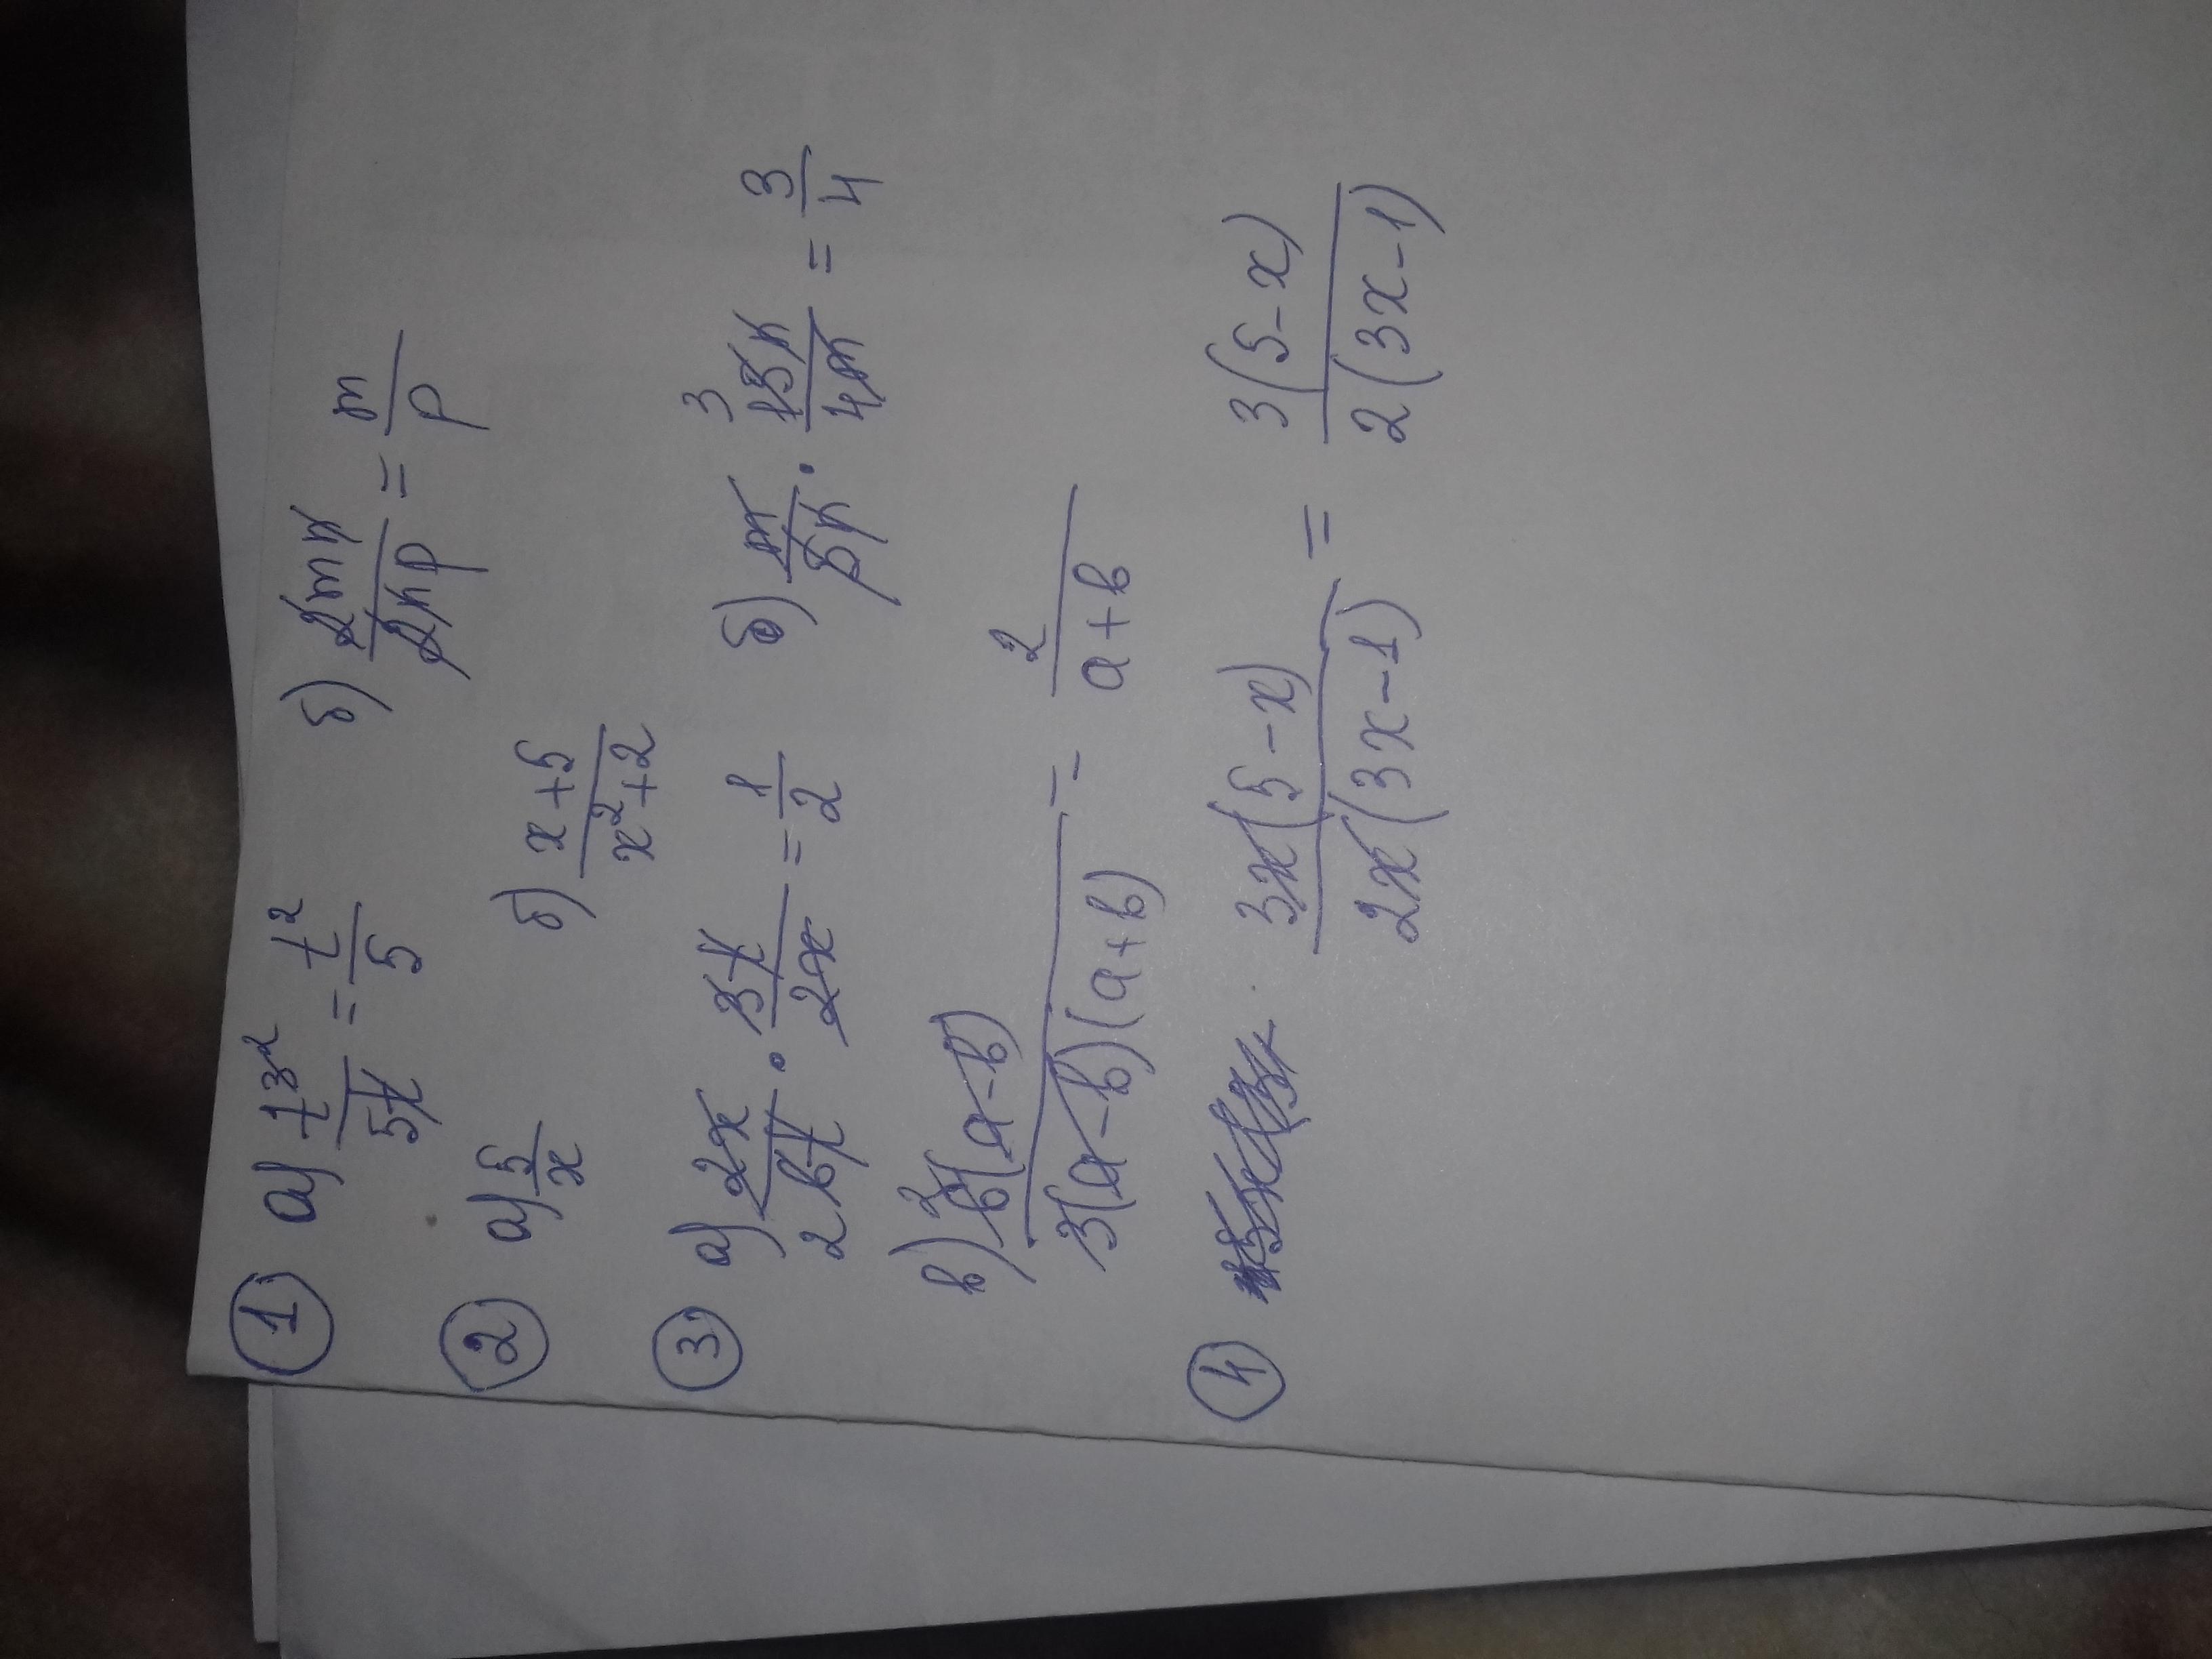 ① а) t³²/5t = t²/5 б) 2mn/2np = m/p
② а) 5/x б) x+5/x²+2
③ а) 2x/2 6t · 3t/2x = 1/2 б) m/5n · 3 15n/4m = 3/4
в) 2 6(a-b)/3(a-b)(a+b) = 2/a+b
④ 3x(5-x)/2x(3x-1) = 3(5-x)/2(3x-1)